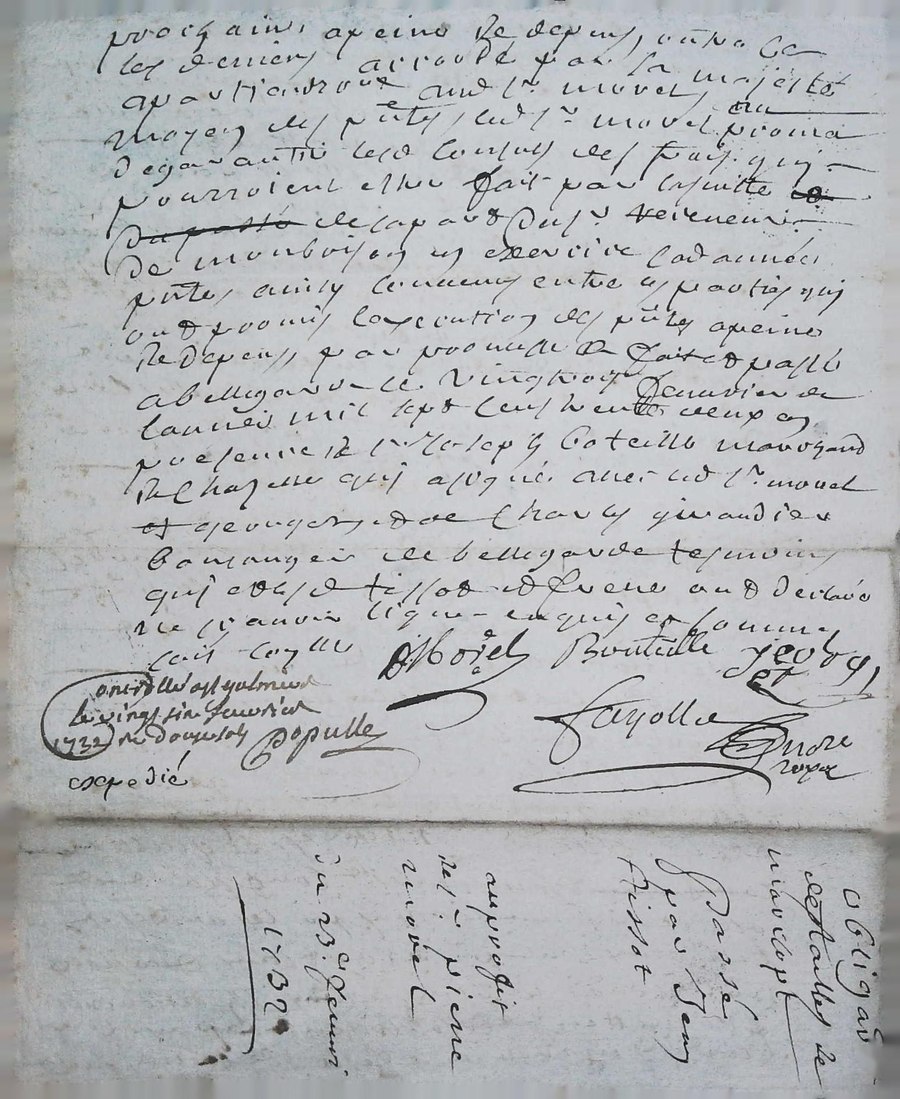 prochain, apeine de depens, outre ce
les deniers accordé par sa majesté
apartiendront aud sr morel, au
moyen des pntes, led sr morel promis
de garantir lesd consuls des frais qui
pourroient estre fait par la suitte
de la part du sr receveur
de monbrison en exercice lad année
pntes ainsy convenu entre les parties qui
ont promis l'execution des pntes apeine
de depens, par promesse &c fait et passé
a bellegarde le vingt trois feuvrier de
lannée mil sept cens trente deux en
presence de sr Joseph boteille marchand
de Chazelle qui a signé avec led sr morel
et georges et de Charles giraudier
boulanger de bellegarde tesmoins
qui et led tissot et frere ont declaré
ne scavoir signer enquis et sommé
morel Bouteille george
controllé a st galmier
le vingt six feuvrier
1732 re douze sols Populle
Fayolle
nore royal
expedié
obligaon
de tailles de
maringt
passé
par Jean
tissot
au profit
de sr pierre
morel
du 23e feuvri
1732